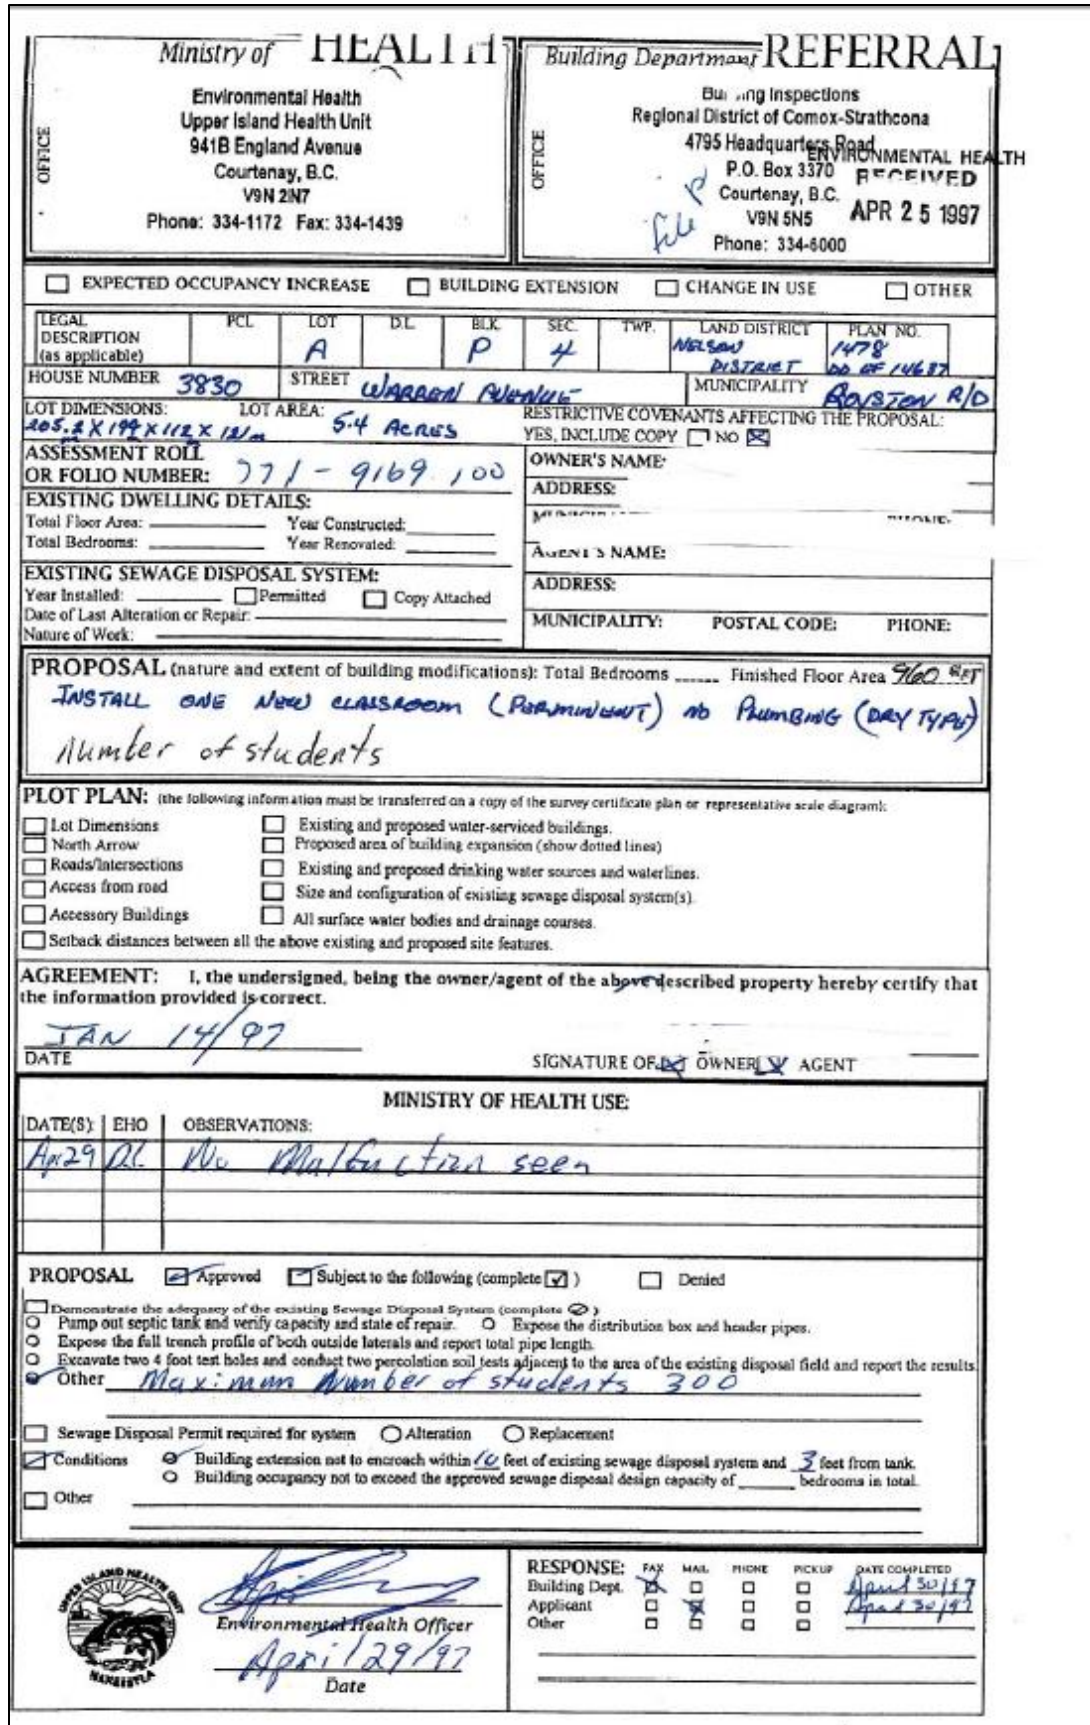 Ministry of HEALTH
Environmental Health
Upper Island Health Unit
941B England Avenue
Courtenay, B.C.
V9N 2N7
Phone: 334-1172 Fax: 334-1439
OFFICE
Building Department REFERRAL
Building Inspections
Regional District of Comox-Strathcona
4795 Headquarters Road
P.O. Box 3370
Courtenay, B.C.
V9N 5N5
Phone: 334-6000
OFFICE
file
ENVIRONMENTAL HEALTH
RECEIVED
APR 25 1997
EXPECTED OCCUPANCY INCREASE BUILDING EXTENSION CHANGE IN USE OTHER
LEGAL DESCRIPTION (as applicable) PCL LOT D.L. BLK. SEC. TWP. LAND DISTRICT PLAN NO.
A P 4 NELSON DISTRICT 1478 DD OF 14687
HOUSE NUMBER 3830 STREET WARREN AVENUE MUNICIPALITY ROYSTON R/D
LOT DIMENSIONS: LOT AREA: 5.4 ACRES
RESTRICTIVE COVENANTS AFFECTING THE PROPOSAL:
YES, INCLUDE COPY NO
ASSESSMENT ROLL
OR FOLIO NUMBER: 771-9169.100
OWNER'S NAME:
ADDRESS:
EXISTING DWELLING DETAILS:
Total Floor Area: Year Constructed:
Total Bedrooms: Year Renovated:
AGENT'S NAME:
EXISTING SEWAGE DISPOSAL SYSTEM:
Year Installed: Permitted Copy Attached
Date of Last Alteration or Repair:
Nature of Work:
ADDRESS:
MUNICIPALITY: POSTAL CODE: PHONE:
PROPOSAL (nature and extent of building modifications): Total Bedrooms Finished Floor Area 960
INSTALL ONE NEW CLASSROOM (PERMINENT) NO PLUMBING (DRY TYPE)
Number of students
PLOT PLAN: (the following information must be transferred on a copy of the survey certificate plan or representative scale diagram):
Lot Dimensions Existing and proposed water-serviced buildings.
North Arrow Proposed area of building expansion (show dotted lines)
Roads/Intersections Existing and proposed drinking water sources and waterlines.
Access from road Size and configuration of existing sewage disposal system(s).
Accessory Buildings All surface water bodies and drainage courses.
Setback distances between all the above existing and proposed site features.
AGREEMENT: I, the undersigned, being the owner/agent of the above described property hereby certify that
the information provided is correct.
JAN 14/97
DATE SIGNATURE OF OWNER AGENT
MINISTRY OF HEALTH USE:
DATE(S): EHO OBSERVATIONS:
Apr 29 D.L. No Malfunction seen
PROPOSAL Approved Subject to the following (complete ) Denied
Demonstrate the adequacy of the existing Sewage Disposal System (complete )
Pump out septic tank and verify capacity and state of repair. Expose the distribution box and header pipes.
Expose the full trench profile of both outside laterals and report total pipe length.
Excavate two 4 foot test holes and conduct two percolation soil tests adjacent to the area of the existing disposal field and report the results.
Other Maximum Number of students 300
Sewage Disposal Permit required for system Alteration Replacement
Conditions Building extension not to encroach within 10 feet of existing sewage disposal system and 3 feet from tank.
Building occupancy not to exceed the approved sewage disposal design capacity of bedrooms in total.
Other
UPPER ISLAND HEALTH UNIT
Environmental Health Officer
April 29/97
Date
RESPONSE: FAX MAIL PHONE PICKUP DATE COMPLETED
Building Dept. April 30/97
Applicant April 30/97
Other